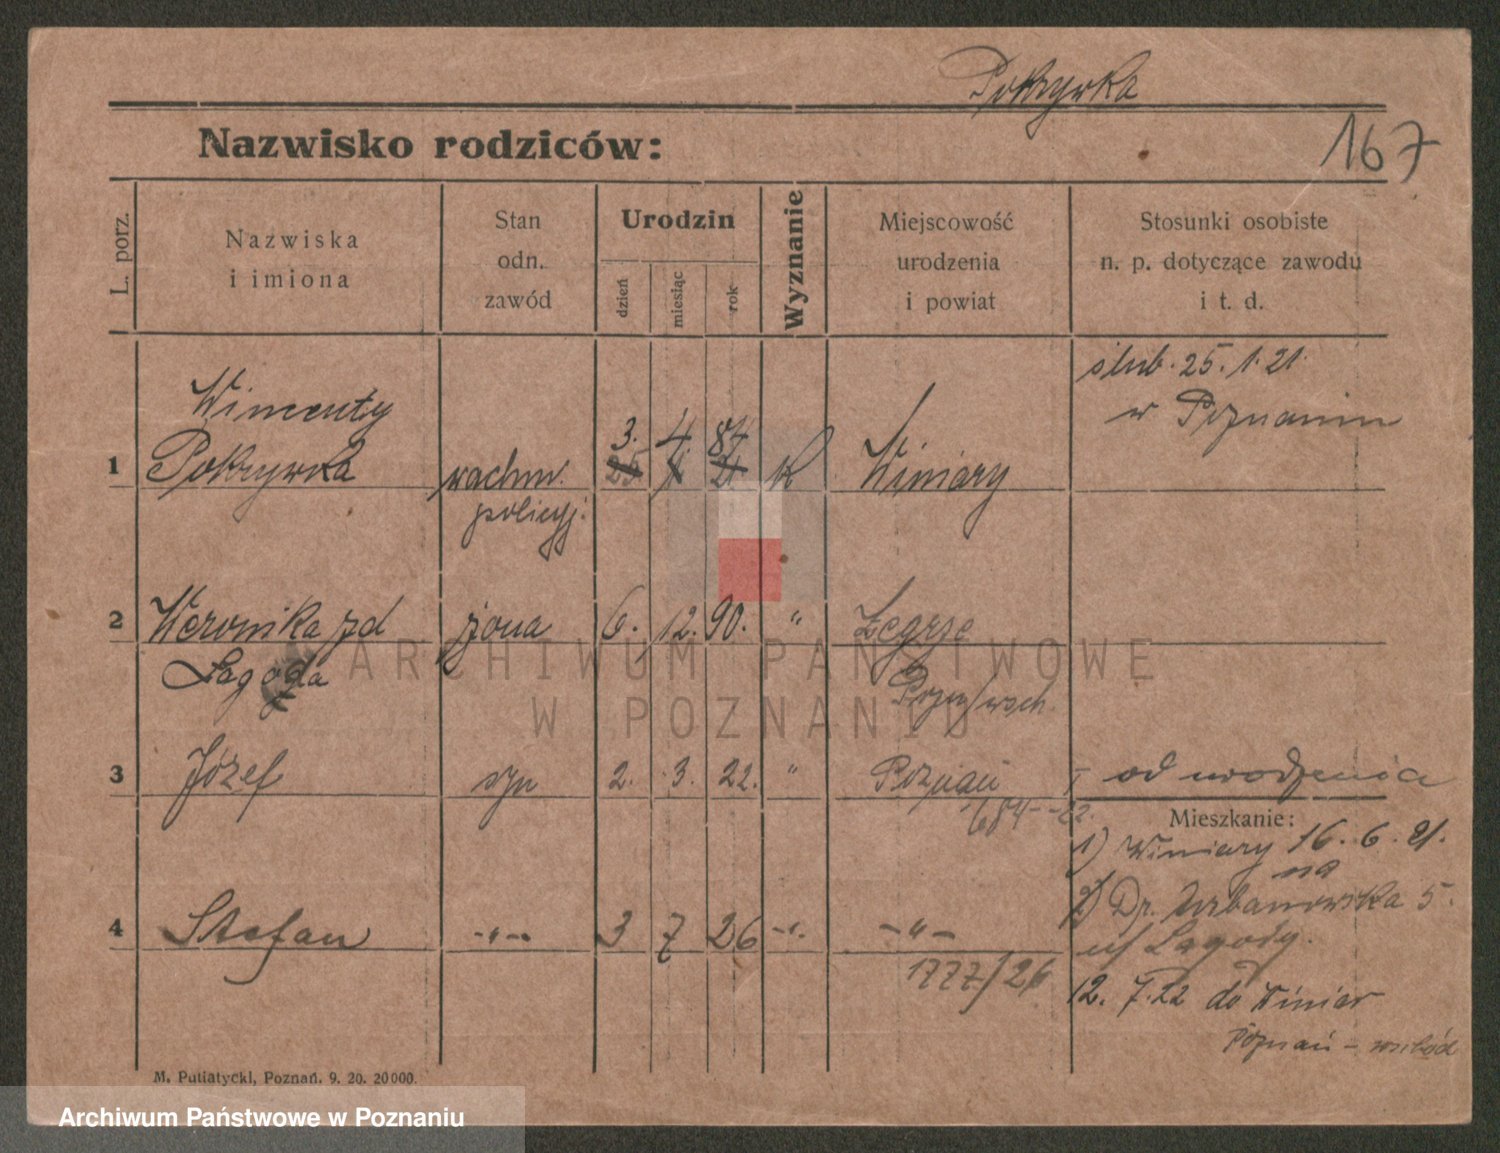 Pokrywka
Nazwisko rodziców:
167
L. porz.
Nazwiska
i imiona
Stan
odn.
zawód
Urodzin
dzień
miesiąc
rok
Wyznanie
Miejscowość
urodzenia
i powiat
Stosunki osobiste
n. p. dotyczące zawodu
i t. d.
ślub. 25. 1. 21.
w Poznaniu
Wincenty
3. 4 84
1 Pokrywka wachm. 25 1 21 k Winiary
policyj.
2 Weronika zd żona 6. 12. 90. " Żegrze
Łagoda Pozn/wsch.
3 Józef syn 2. 3. 22. " Poznań od urodzenia
1684--22.
Mieszkanie:
1) Winiary 16. 6. 21.
na
2) Dr. Urbanowska 5.
u/ Łagody.
4 Stefan -"- 3 7 26 -"- -"-
1777/26
12. 7. 22 do Winiar
Poznań - wschód
M. Putiatycki, Poznań. 9. 20. 20000.
ARCHIWUM PAŃSTWOWE
W POZNANIU
Archiwum Państwowe w Poznaniu